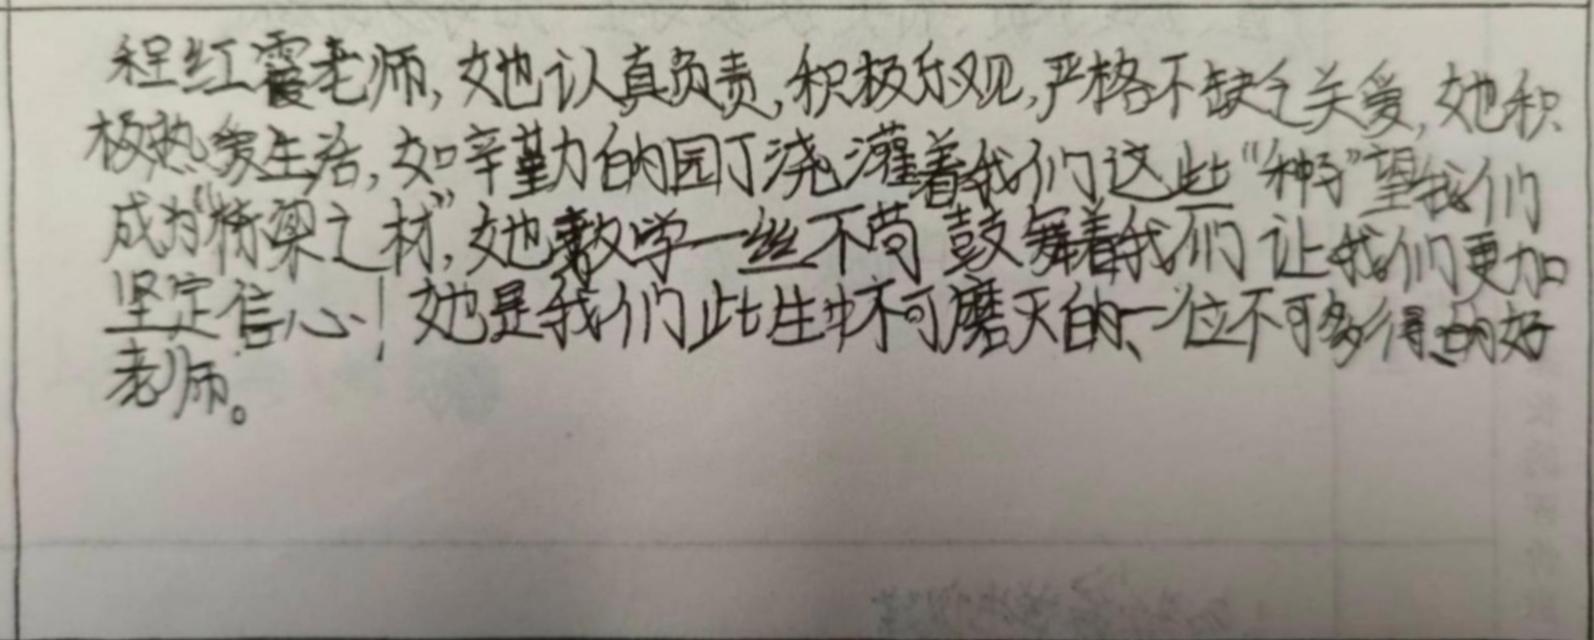 程红霞老师,她认真负责,积极乐观,严格不缺乏关爱,她积
极热爱生活,如辛勤的园丁浇灌着我们这些“种子”望我们
成为“栋梁之材”,她教学一丝不苟鼓舞着我们让我们更加
坚定信心!她是我们此生中不可磨灭的、一位不可多得的好
老师。